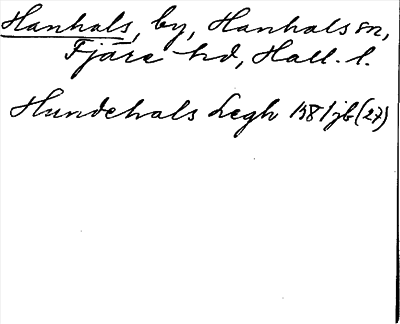 Hanhals, by, Hanhals sn,
Fjäre hd, Hall. l.
Hundehals Legh 1581 jb (27)